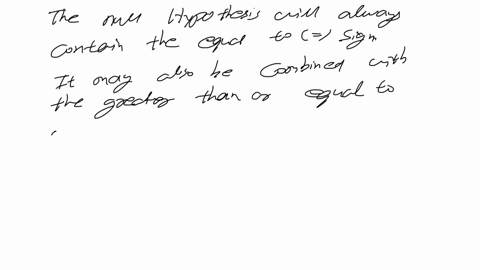 The null Hypothesis will always
contain the equal to (=) sign
It may also be combined with
the greator than or equal to
(